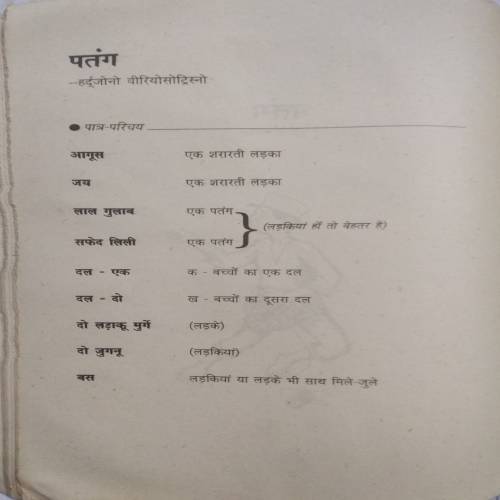 पतंग
–हर्दूजोनो वीरियोसोट्रिस्नो
● पात्र-परिचय
आगूस एक शरारती लड़का
जय एक शरारती लड़का
लाल गुलाब एक पतंग
(लड़कियां हों तो बेहतर है)
सफेद लिली एक पतंग
दल - एक क - बच्चों का एक दल
दल - दो ख - बच्चों का दूसरा दल
दो लड़ाकू मुर्गे (लड़के)
दो जुगनू (लड़कियां)
बस लड़कियां या लड़के भी साथ मिले-जुले